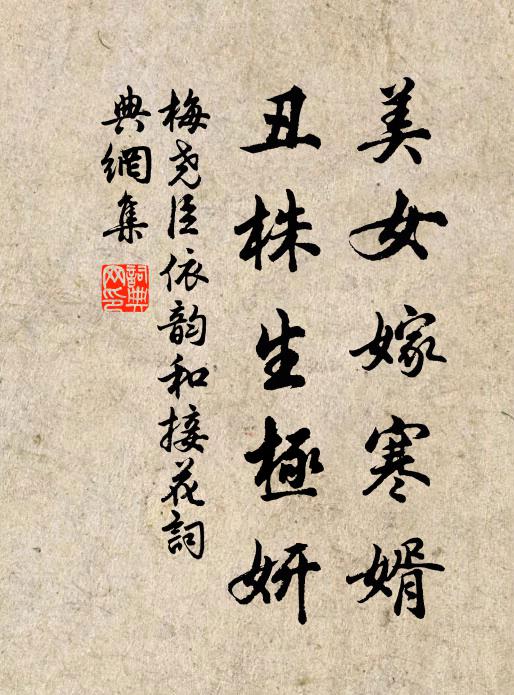 美女嫁寒婿
丑株生極妍
梅尧臣依韵和接花詞
典網集
詞典網印